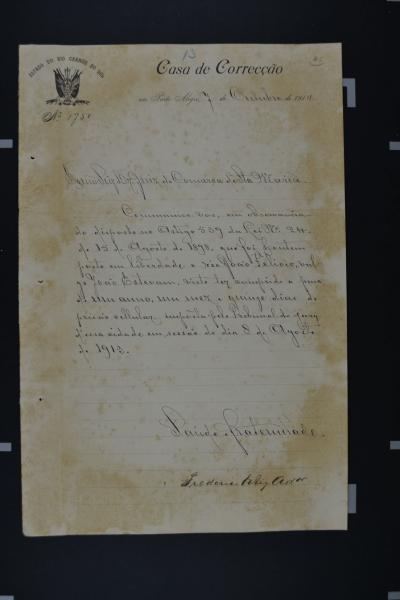 13
ESTADO DO RIO GRANDE DO SUL
Casa de Correcção
em Porto Alegre, 7 de Outubro de 191
Nº 1751
Dr. Juiz da Comarca de Sta Maria
Communico-vos, em observancia
do disposto no Artigo 559 da Lei Nº 24
de 15 de Agosto de 1898, que foi hontem
posto em liberdade o réo João
João Estevam, visto ter cumprido a pena
de um anno, um mez e quinze dias de
prisão cellular, imposta pelo Tribunal do Jury
d'essa cidade em sessão do dia 8 de Agosto
de 1913.
Saude e fraternidade.